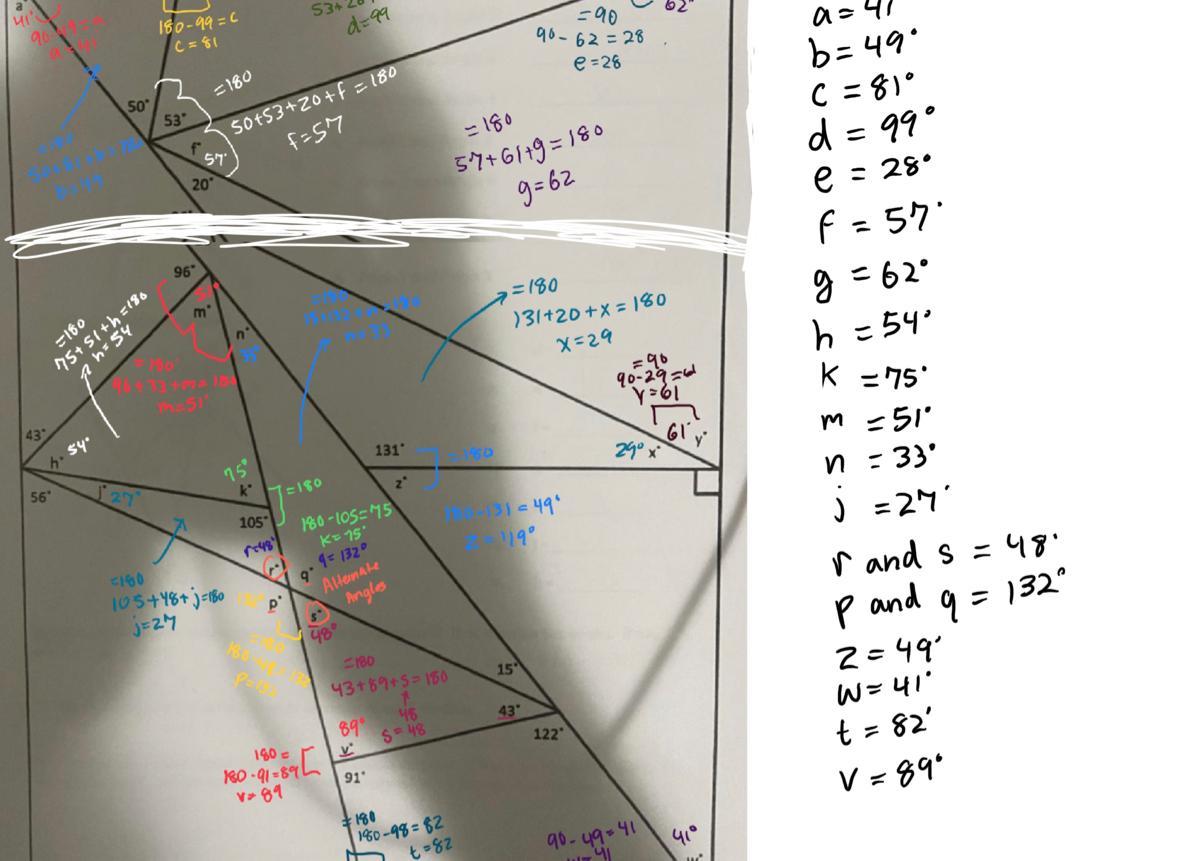 a°
41°
90-49=a
a=41
180-99=c
c=81
d=99
=90
90-62=28
e=28
62°
a=41
b=49°
c=81°
d=99°
e=28°
f=57°
g=62°
h=54°
k=75°
m=51°
n=33°
j=27°
r and s=48°
p and q=132°
z=49°
w=41°
t=82°
v=89°
50°
53°
f°
57°
20°
=180
50+53+20+f=180
f=57
=180
57+61+g=180
g=62
b=49
96°
51°
m°
n°
33°
=180
75+51+h=180
h=54
=180
96+33+m=180
m=51°
=180
15+132+n=180
n=33
=180
131+20+x=180
x=29
=90
90-29=61
y=61
61°
29°
x°
y°
43°
h°
54°
56°
j°
27°
75°
k°
105°
=180
180-105=75
k=75°
131°
z°
=180
180-131=49°
z=49°
r=48°
r°
q°
q=132°
Alternate
Angles
=180
105+48+j=180
j=27
132°
p°
s°
48°
=180
180-48=132
p=132
=180
43+89+s=180
48
s=48
15°
43°
122°
89°
v°
91°
180=
180-91=89
v=89
=180
180-98=82
t=82
90-49=41
w=41
41°
w°